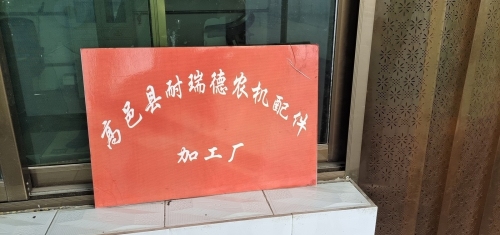 高邑县耐瑞德农机配件
加工厂